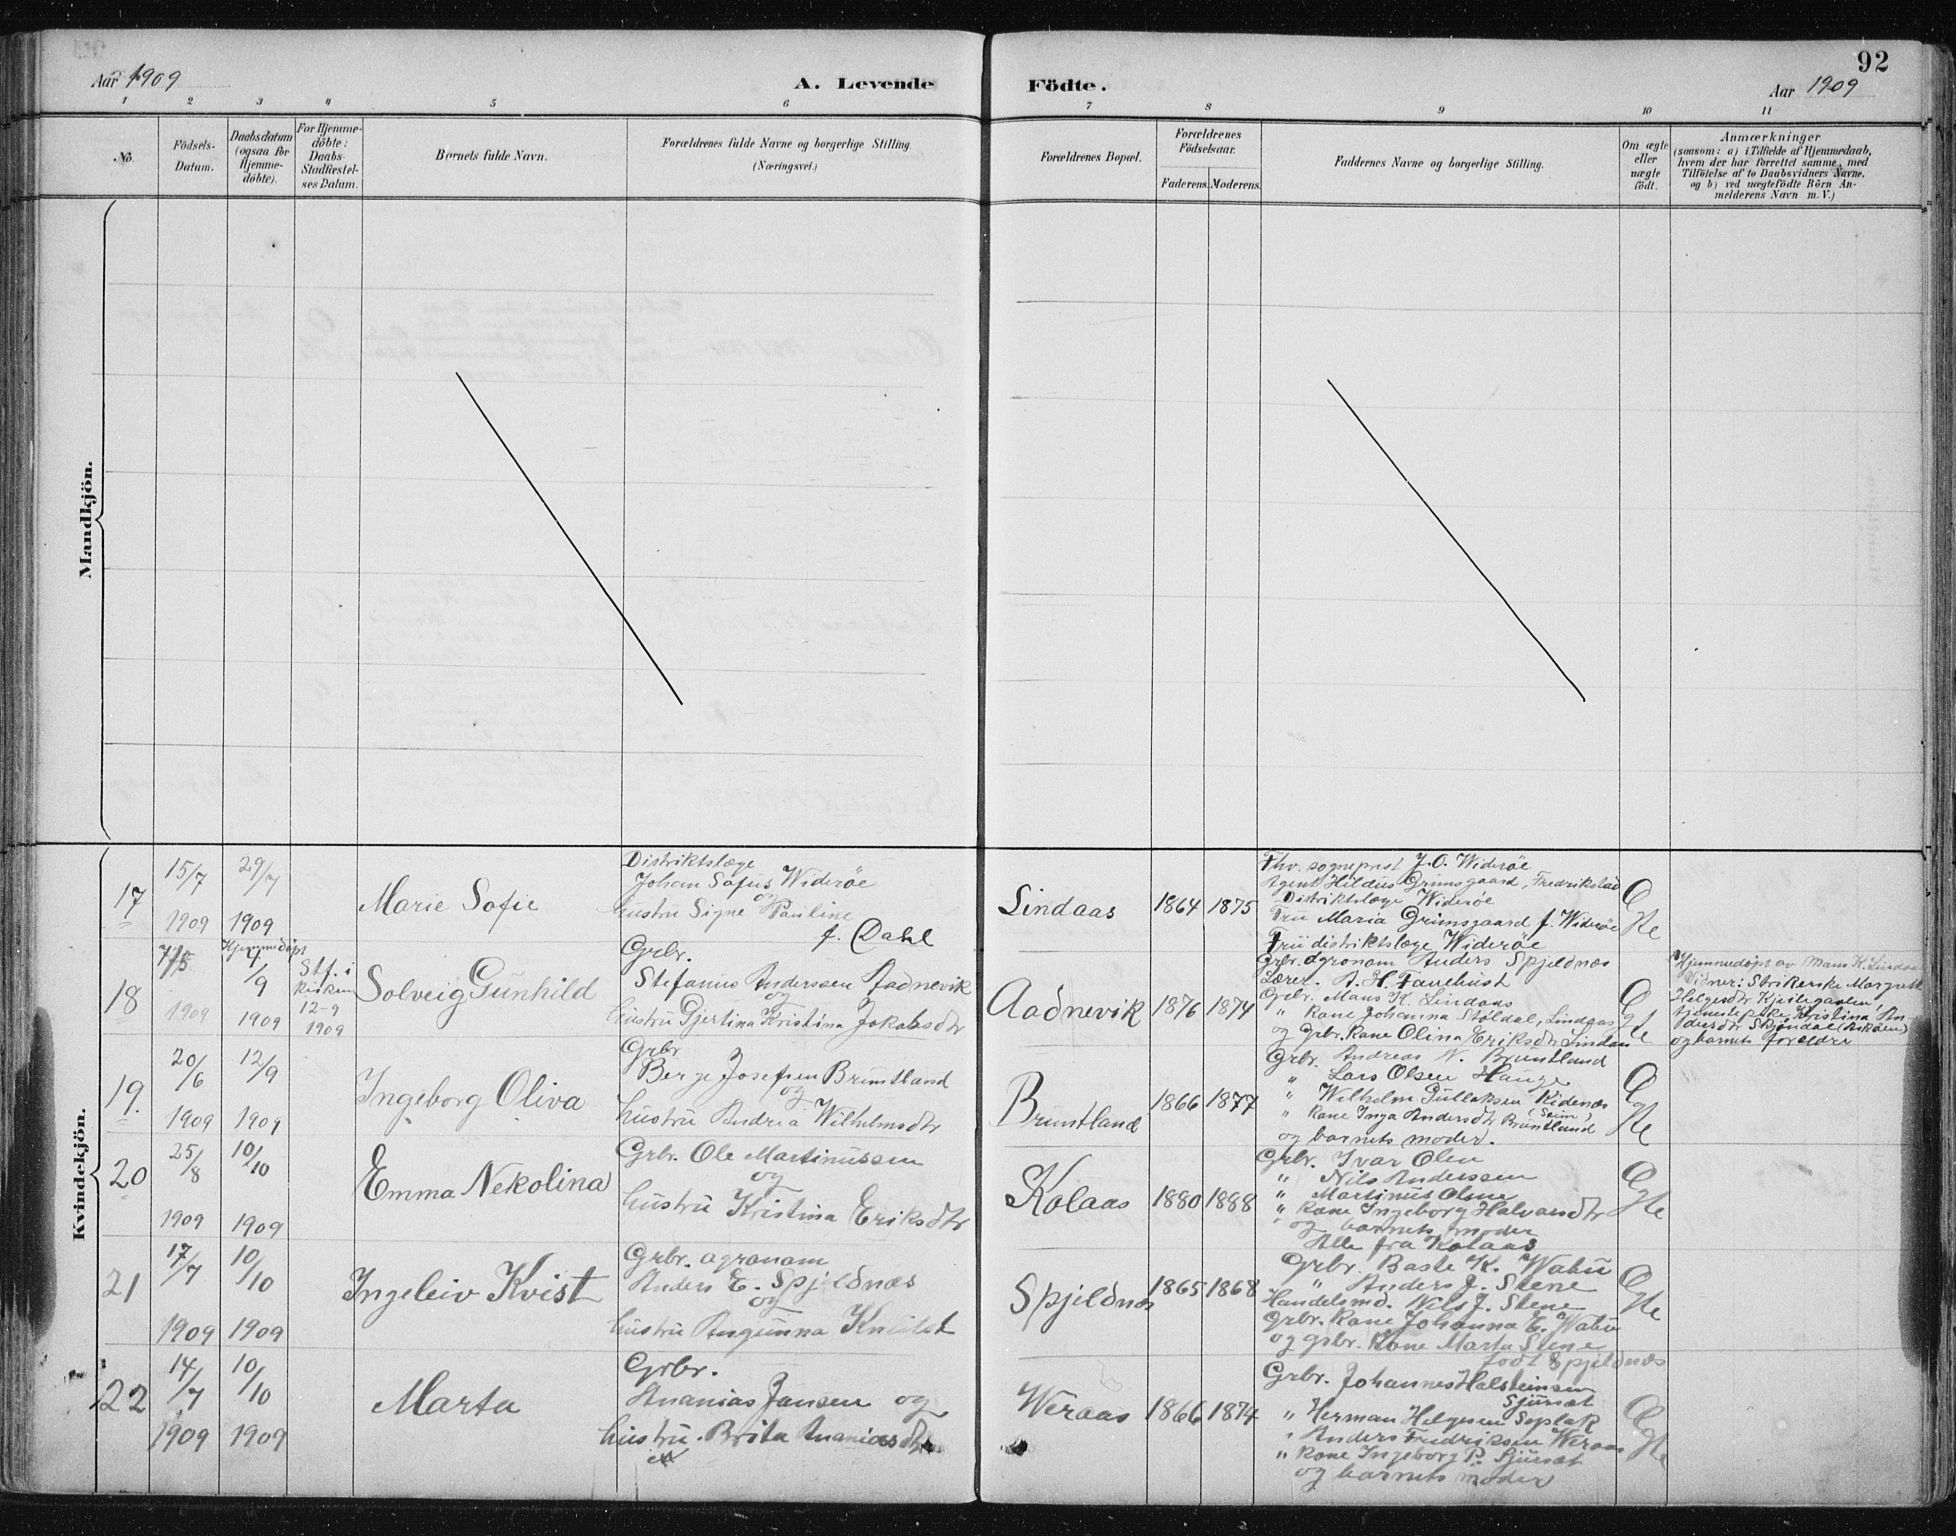 92
Aar 1909
A. Levende Födte.
Aar 1909
1 2 3 4 5 6 7 8 9 10 11
No.
Födsels-
Datum.
Daabsdatum
(ogsaa for
Hjemme-
döbte).
For Hjemme-
döbte:
Daabs-
Stadfæstel-
ses Datum.
Barnets fulde Navn.
Forældrenes fulde Navne og borgerlige Stilling.
(Næringsvei.)
Forældrenes Bopæl.
Forældrenes
Födselsaar.
Faderens. Moderens.
Faddernes Navne og borgerlige Stilling.
Om ægte
eller
uægte
födt.
Anmærkninger
(saasom: a) i Tilfælde af Hjemmedaab,
hvem der har forrettet samme, med
Tilföielse af to Daabsvidners Navne,
og b) ved uægtefödte Börn An-
melderens Navn m.V.)
Mandkjön.
Kvindekjön.
17
15/7
1909
29/7
1909
Marie Sofie
Distriktslæge
Johan Sofus Wideröe
og
hustru Signe Pauline
f. Dahl
Lindaas
1864 1875
Fhv. sogneprest J.O. Wideröe
Agent Hildus Grimsgaard, Fredrikstad
Distriktslæge Wideröe
Fru Maria Grimsgaard f. Wideröe
Fru distriktslæge Wideröe
Ægte
18
7/5
1909
Hjemmedöpt
4/9
1909
Stf. i
kirken
12-9
1909
Solveig Gunhild
Grbr.
Stefanus Anderssen Aadnevik
og
hustru Gjertina Kristina Jakobsdtr
Aadnevik
1876 1874
Grbr. agronom Anders Spjeldnæs
Lærer. A. H. Fanehust
Grbr. Mans K. Lindaas
" kone Johanna Stöldal, Lindaas
og Grbr. kone Olina Eriksdtr Lindaas
Ægte
Hjemmedöpt av Mans K. Lindaas
Vidner: Strikerske Margrete
Helgesdtr Kjeilegavlen
tjenestepike Kristina An-
dersdtr Skjöndal (Asköen)
og barnets forældre
19.
20/6
1909
12/9
1909
Ingeborg Oliva
Grbr
Berge Josefsen Bruntland
og
hustru Andrea Wilhelmsdtr
Bruntland
1866 1877
Grbr. Andreas N. Bruntland
" Lars Olsen Hauge
" Wilhelm Gullaksen Kidenæs
(Seim)
" kone Inga Andersdtr Bruntland
og barnets moder.
Ægte
20
25/8
1909
10/10
1909
Emma Nekolina
Grbr. Ole Martinussen
og
hustru Kristina Eriksdtr
Kolaas
1880 1888
Grbr. Ivar Olsen
" Nils Anderssen
" Martinus Olsene
" kone Ingeborg Halvarsdtr
og barnets moder
Alle fra Kolaas
Ægte
21
17/7
1909
10/10
1909
Ingeleiv Kvist
Grbr. agronom
Anders E. Spjeldnæs
og
hustru Angunna
Spjeldnæs
1865 1868
Grbr. Baste K. Watu
" Anders J. Stene
Handelsmd. Nils J. Stene
Grbr. kone Johanna E. Watu
og grbr. kone Marta Stene
födt Spjeldnæs
Ægte
22
14/7
1909
10/10
1909
Marta
Grbr.
Ananias Jansen og
hustru Brita Ananiasdtr
Weraas
1866 1874
Grbr. Johannes Halsteinsen
Sjursæt
" Herman Helgesen Soplak
" Anders Fredriksen Weraas
" kone Ingeborg P. Sjursæt
og barnets moder
Ægte